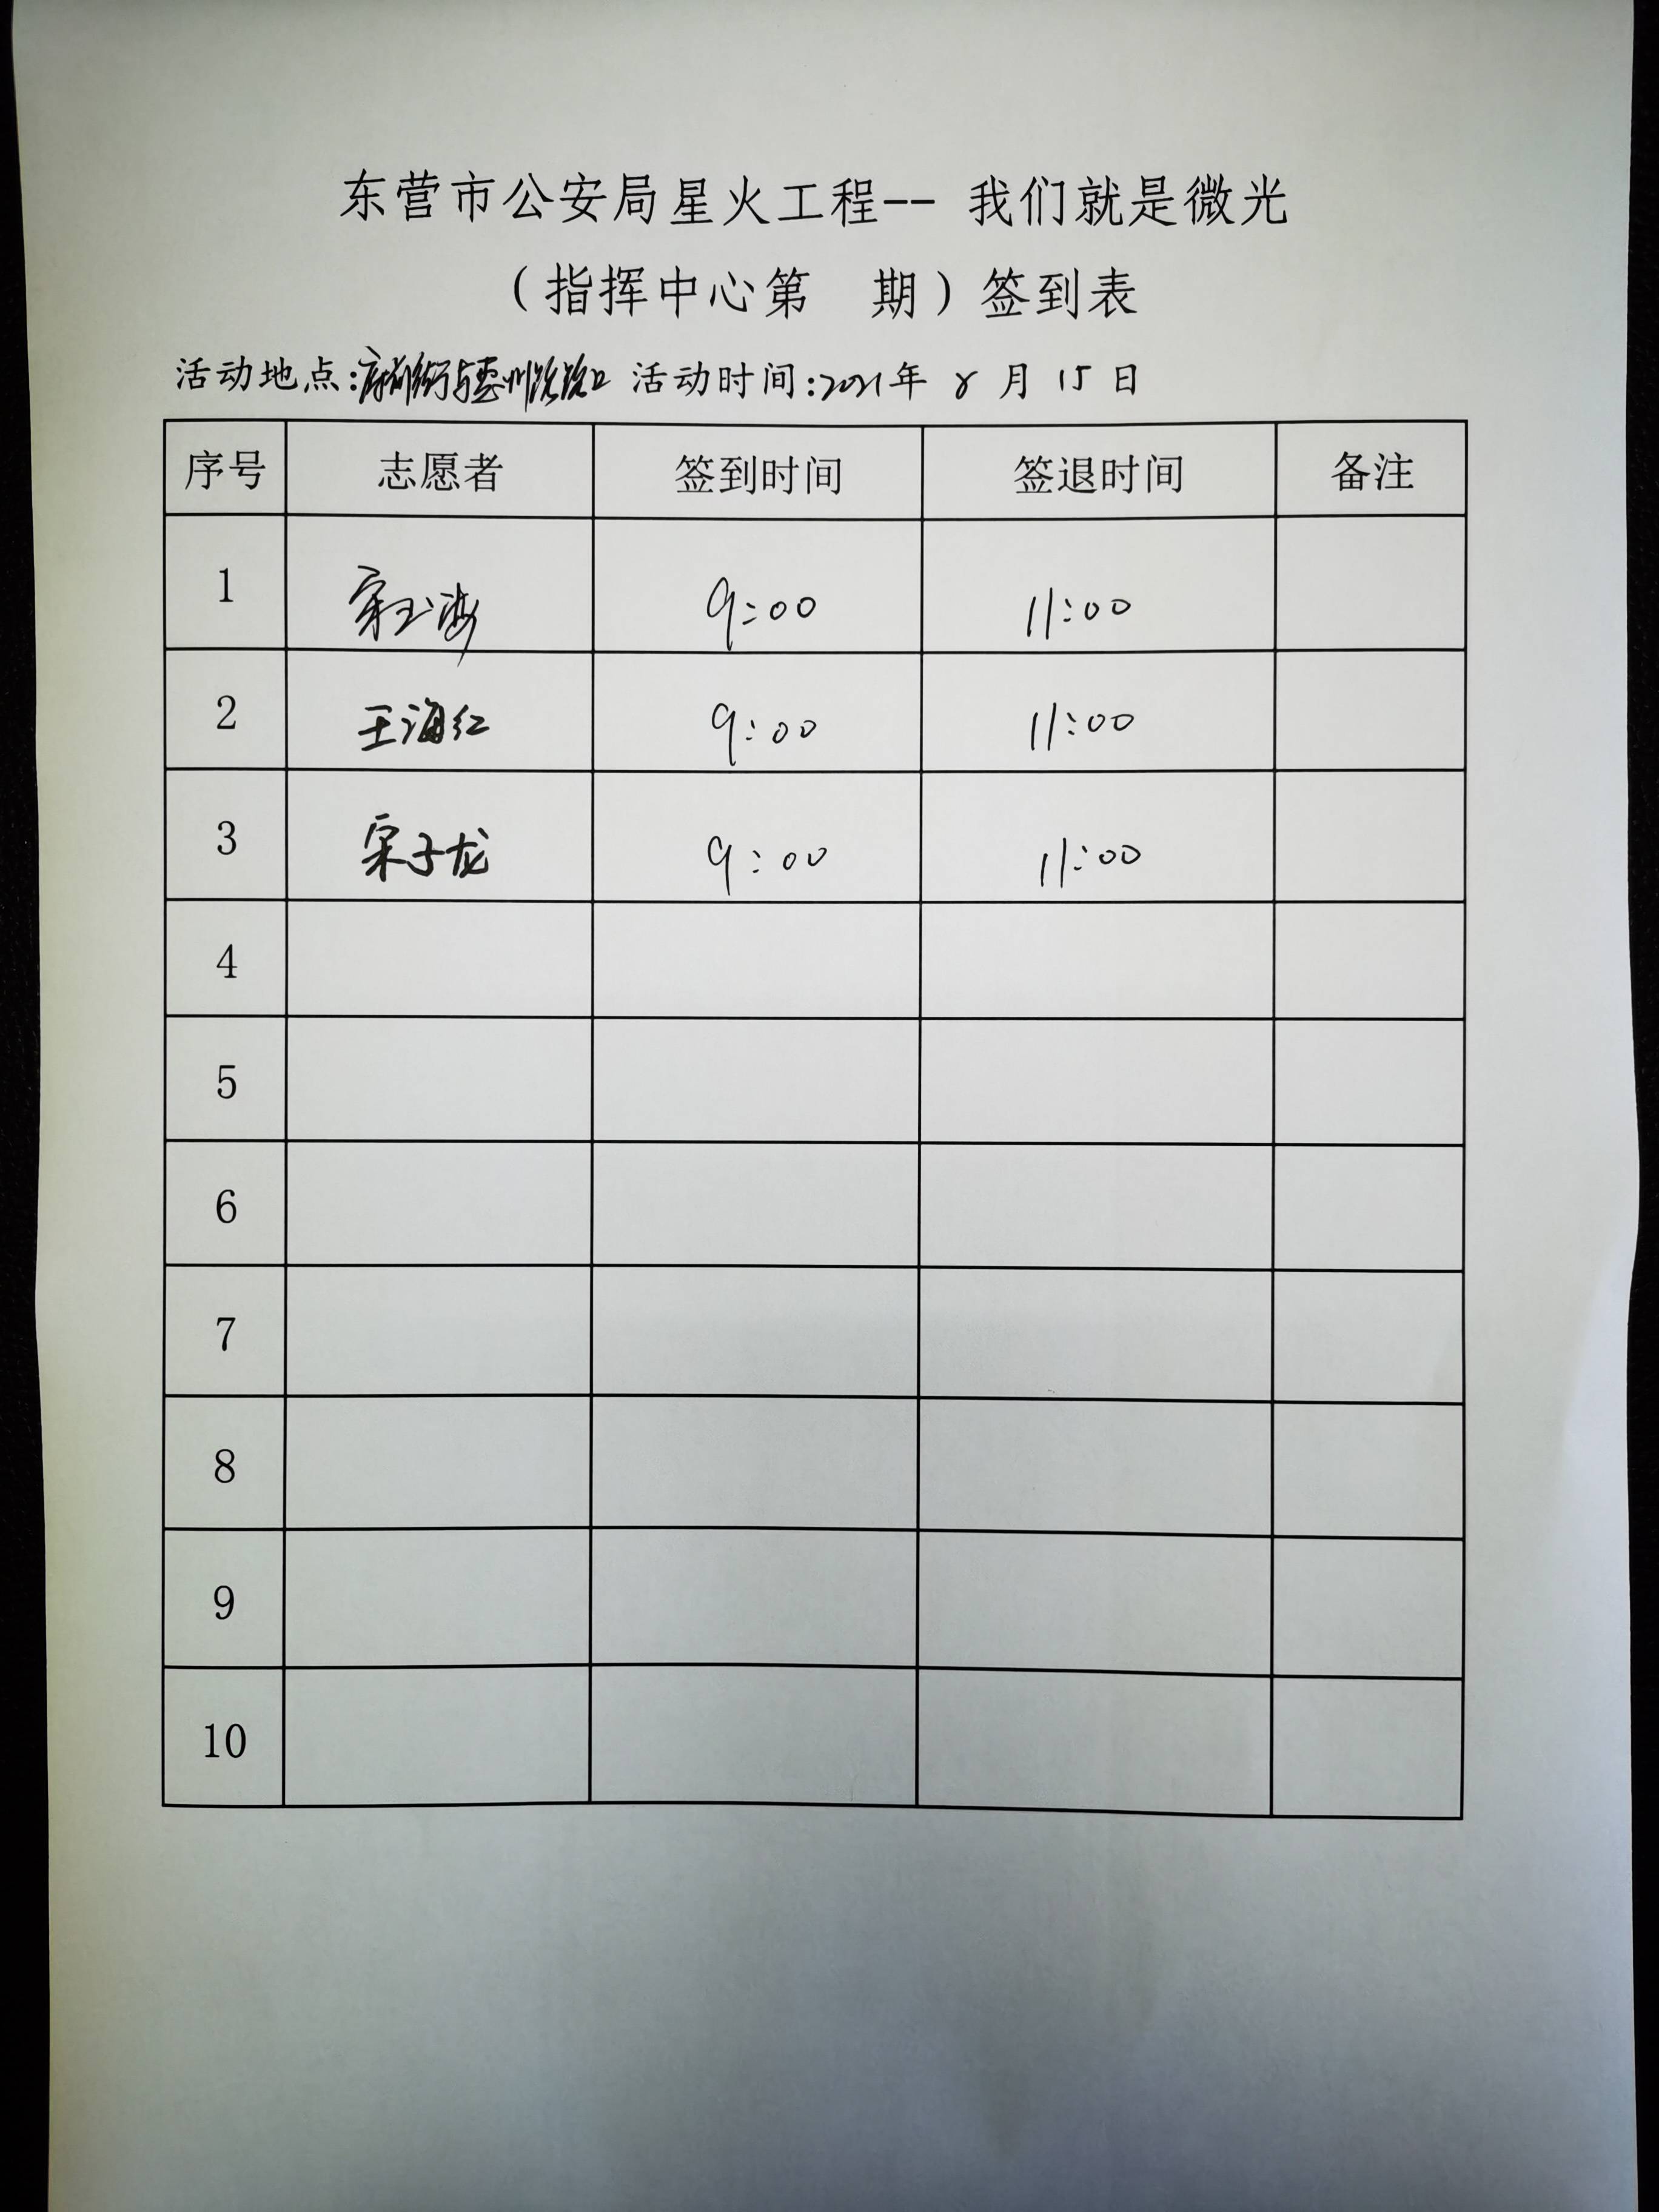 东营市公安局星火工程-- 我们就是微光
（指挥中心第 期）签到表
活动地点:府前街与惠州路路口 活动时间:2021年 8 月 15 日
序号 志愿者 签到时间 签退时间 备注
1 宋玉海 9:00 11:00
2 王海红 9:00 11:00
3 宋子龙 9:00 11:00
4
5
6
7
8
9
10